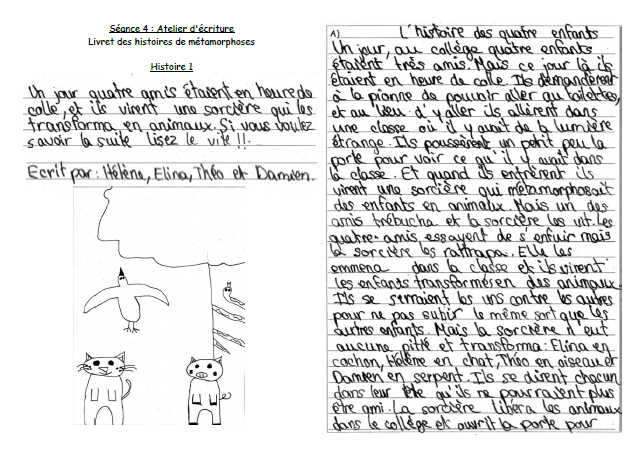 Séance 4 : Atelier d'écriture
Livret des histoires de métamorphoses
Histoire 1
Un jour quatre amis étaient en heure de
colle, et ils virent une sorcière qui les
transforma en animaux. Si vous voulez
savoir la suite lisez le vite !!.
Ecrit par : Hélène, Elina, Théo et Damien.
A) L'histoire des quatre enfants
Un jour, au collège quatre enfants
étaient très amis. Mais ce jour là ils
étaient en heure de colle. Ils demandèrent
à la pionne de pouvoir aller au toilettes,
et au lieu d'y aller ils allèrent dans
une classe où il y avait de la lumière
étrange. Ils poussèrent un petit peu la
porte pour voir ce qu'il y avait dans
la classe. Et quand ils entrèrent ils
virent une sorcière qui métamorphosait
des enfants en animaux. Mais un des
amis trébucha et la sorcière les vit. Les
quatre amis essayent de s'enfuir mais
la sorcière les rattrapa. Elle les
emmena dans la classe et ils virent
les enfants transformés en des animaux.
Ils se serraient les uns contre les autres
pour ne pas subir le même sort que les
autres enfants. Mais la sorcière n'eut
aucune pitié et transforma : Elina en
cochon, Hélène en chat, Théo en oiseau et
Damien en serpent. Ils se disent chacun
dans leur tête qu'ils ne pourraient plus
être ami. La sorcière libéra les animaux
dans le collège et ouvrit la porte pour